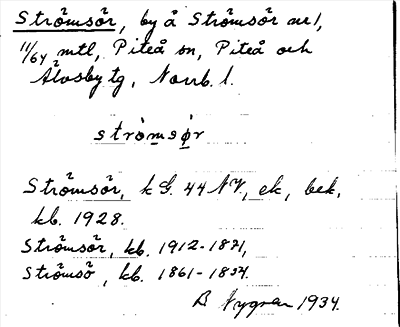 Strömsör, by å Strömsör nr 1,
11/64 mtl, Piteå sn, Piteå och
Älvsby tg, Norrb. l.
strömsør
Strömsör, kG. 44 NV, ek, bek,
kb. 1928.
Strömsör, kb. 1912-1871,
Strömsö, kb. 1861-1834.
B Nygren 1934.